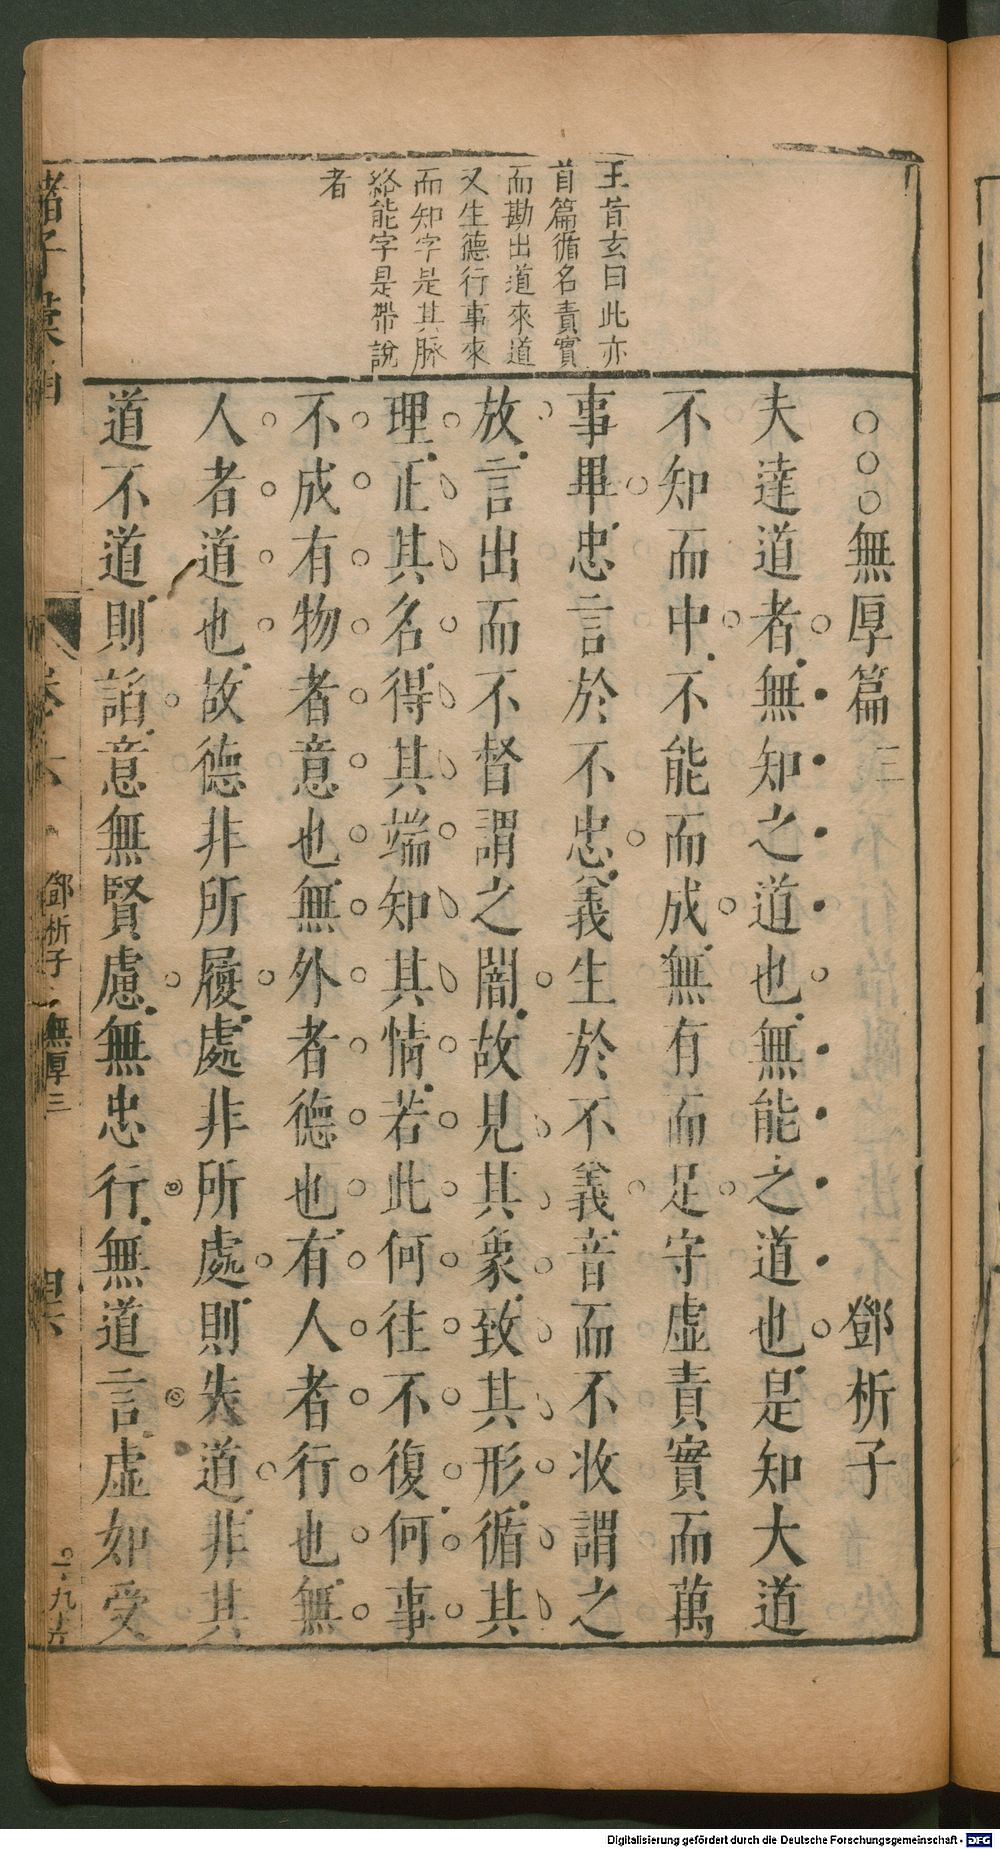 王旹玄曰此亦
首篇循名責實
而勘出道來道
又生德行事來
而知字是其脉
絡能字是帶說
者
○○○無厚篇三 鄧析子
夫達道者無知之道也無能之道也是知大道
不知而中不能而成無有而足守虛責實而萬
事畢忠言於不忠義生於不義音而不收謂之
放言出而不督謂之闇故見其象致其形循其
理正其名得其端知其情若此何往不復何事
不成有物者意也無外者德也有人者行也無
人者道也故德非所履處非所處則失道非其
道不道則諂意無賢慮無忠行無道言虛如受
鄧析子 無厚三
Digitalisierung gefördert durch die Deutsche Forschungsgemeinschaft - DFG